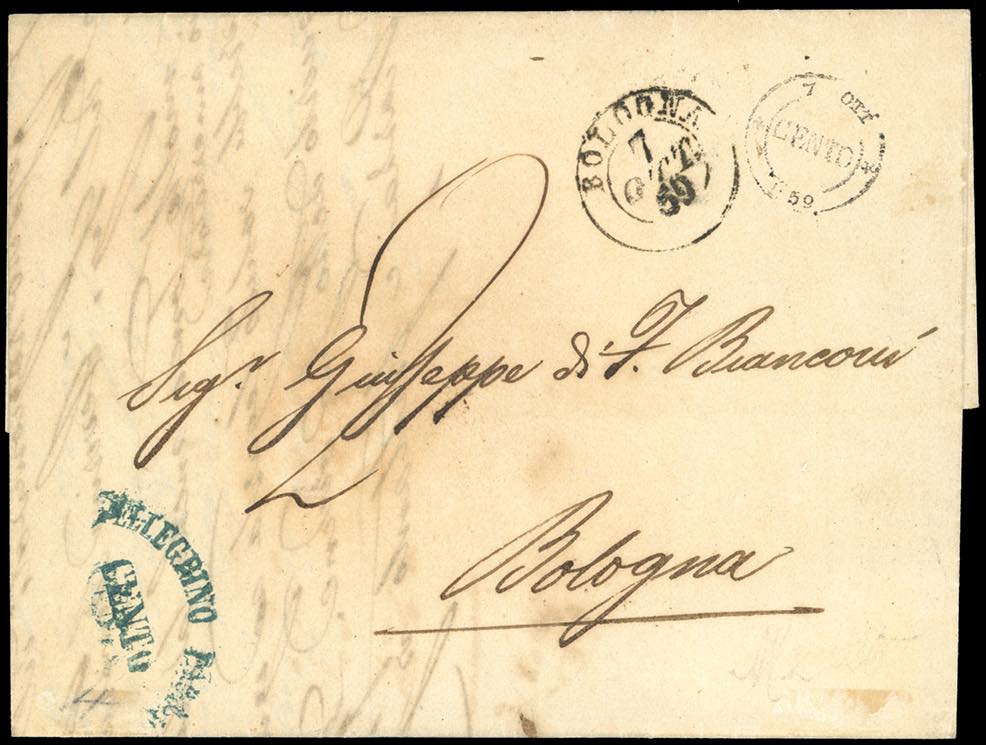 BOLOGNA
7
OTT
59
7 OTT
CENTO
59
2
Sigr. Giuseppe di F. Bianconi
Bologna
PELLEGRINO
CENTO
4